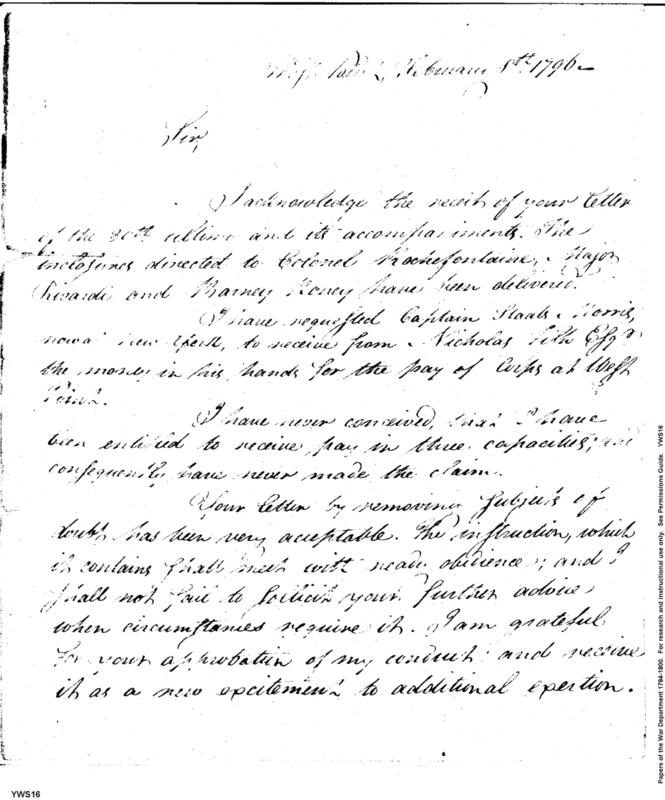 West Point, February 8th. 1796 —
Sir,
I acknowledge the receit of your letter
of the 30th ultimo and its accompaniments. The
inclosures directed to Colonel Rochefontaine, Major
Rivardi and Barney Roney have been delivered.
I have requested Captain Staats Morris,
now at New York, to receive from Nicholas Fish Esqr
the money in his hands for the pay of Corps at West
Point.
I have never conceived, that I have
been entitled to receive pay in three capacities; and
consequently have never made the claim.
Your letter by removing subjects of
doubt has been very acceptable. The instruction, which
it contains shall meet with ready obedience; and I
shall not fail to solicit your further advice
when circumstances require it. I am grateful
for your approbation of my conduct and receive
it as a new excitement to additional exertion.
YWS16
Papers of the War Department 1784-1800. For research and instructional use only. See Permissions Guide. YWS16